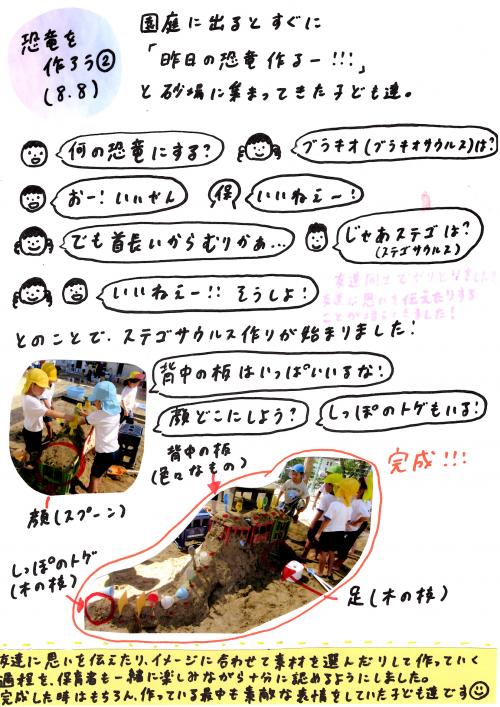 恐竜を
作ろう②
(8.8)
園庭に出るとすぐに
「昨日の恐竜作るー!!!」
と砂場に集まってきた子ども達。
何の恐竜にする?
ブラキオ(ブラキオサウルス)は?
おー!いいやん
保
いいねぇー!
でも首長いからむりかぁ...
じゃあステゴは?
(ステゴサウルス)
いいねぇー!!そうしよ!
友達に思いを伝えたりする
とのことで、ステゴサウルス作りが始まりました!
背中の板はいっぱいいるな!
顔どこにしよう?
しっぽのトゲもいる!
背中の板
(色々なもの)
完成!!!
顔(スプーン)
しっぽのトゲ
(木の枝)
足(木の枝)
友達に思いを伝えたり、イメージに合わせて素材を選んだりして作っていく
過程も、保育者も一緒に楽しみながら十分に認めるようにしました。
完成した時はもちろん、作っている最中も素敵な表情をしていた子ども達です